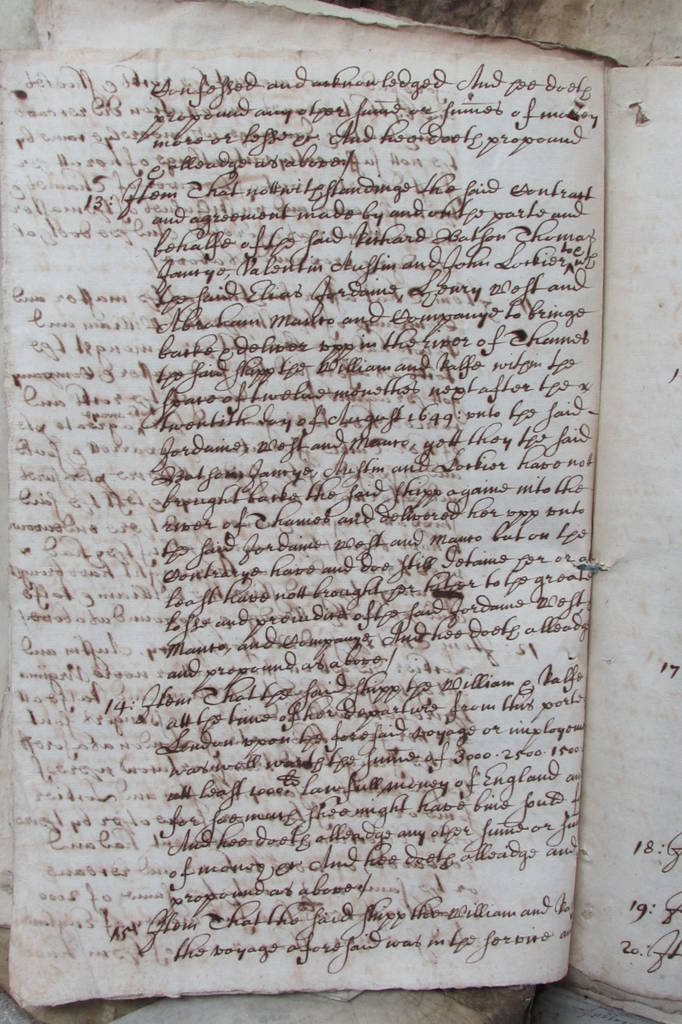 Confessed and acknowledged And hee doeth
propound any other summe or summes of money
more or lesse &c. And hee doeth propound
& alleadge as above/
13: Item That nottwithstandinge the said Contract
and agreement made by and on the parte and
behalfe of the said Richard Bathon Thomas
Jamye, Valentin Austin and John Lockier to & wth
the said Elias Jordaine, Henry West and
Abraham Manto and Companye to bringe
backe & deliver upp in the river of Thames
the said shipp the William and Ralfe within the
space of twelve monethes next after the
twentith day of August 1649: unto the said
Jordaine, West and Manto, yett they the said
Bathon Jamye, Austin and Lockier have not
brought backe the said shipp againe into the
river of Thames and delivered her upp unto
the said Jordaine West and Manto but on the
Contrarye have and doe still detaine her or a
least have nott brought her hither to the greate
losse and prejudice of the said Jordaine West
Manto, and Companye, And hee doeth alleadg
and propound as above/
14: Item That the said shipp the William & Ralfe
att the time of her departure from this porte
London upon the foresaid voyage or imploym
was well worth the summe of 3000. 2500. 1500
att least lawfull money of England an
for soe much shee might have bine sould
And hee doeth alleadge any other summe or sum
of money &c And hee doeth alleadge and
propound as above/
15: Item That the said shipp the William and Ra
the voyage aforesaid was in the service an
17
18:
19:
20: It